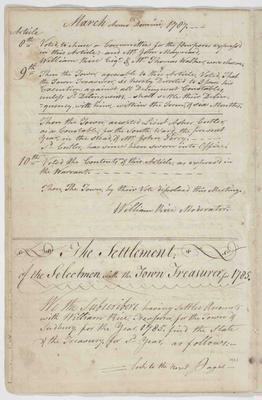 March Anno Domini, 1787.
Article
8th Voted to chuse a Committee for the purposes expressed
in this Article; and Mr John Maynard,
William Rice Esqr. & Mr Thomas Walker, were chosen.
9th Then the Town, agreeable to this Article, Voted, That
the Town Treasurer, is hereby directed to stay his
Execution against all Delinquent Constables,
unless sd Delinquents, shall settle their Delin-
quency with him, within the Term of two Months.
Then the Town, accepted Lieut Asher Cutler,
as a Constable, for the South Ward, the present
Year, in the stead of Mr John Perry.
Sd Cutler, has since been sworn into Office.
10th Voted the Contents of this Article, as expressed in
the Warrant.
Then, The Town, by their Vote dissolved this Meeting.
William Rice Moderator.
The Settlement,
of the Selectmen with the Town Treasurer, 1785.
We the Subscribers having Settled Accounts
with William Rice, Treasurer for the Town of
Sudbury for the Year, 1785, find the State
of the Treasury for sd Year, as follows.
look to the next Page